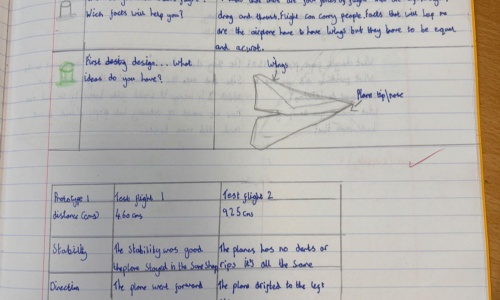 drag and thrust. Flight can carry people. facts that will help me
Wich facts will help you?
are the airplane have to have wings but they have to be equal
and acurat.
First design... what
ideas do you have?
Wings
Plane tip/nose
Prototype 1 Test flight 1 Test flight 2
distance (cms) 460 cms 925 cms
Stability The Stability was good The planes has no dents or
the plane stayed in the Same Shap rips it's all the same
Direction The plane went forward The plane drifted to the left